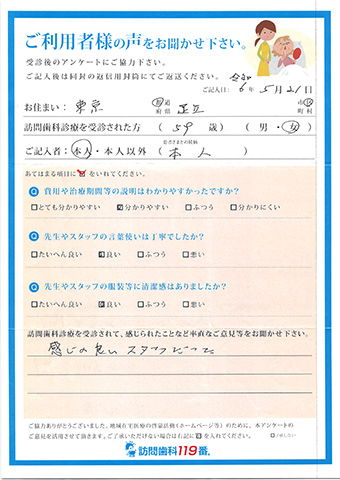 ご利用者様の声をお聞かせ下さい。
受診後のアンケートにご協力下さい。
ご記入後は同封の返信用封筒にてご返送ください。
ご記入日: 令和 6年 5月 21日
お住まい: 東京 都道府県 足立 市区町村
訪問歯科診療を受診された方 ( 59 歳) (男・女)
ご記入者: 本人・本人以外 (患者さまとの続柄 本人 )
あてはまる項目に☑をいれてください。
Q 費用や治療期間等の説明はわかりやすかったですか?
□とても分かりやすい ☑分かりやすい □ふつう □分かりにくい
Q 先生やスタッフの言葉使いは丁寧でしたか?
□たいへん良い ☑良い □ふつう □悪い
Q 先生やスタッフの服装等に清潔感はありましたか?
□たいへん良い ☑良い □ふつう □悪い
訪問歯科診療を受診されて、感じられたことなど率直なご意見等をお聞かせ下さい。
感じの良いスタッフだった
ご協力ありがとうございました。地域在宅医療の啓蒙活動(ホームページ等)のために、本アンケートの
ご意見を活用させて頂きます。ご了承いただけない場合は右記に☑を入れてください。 □了承しない
訪問歯科119番